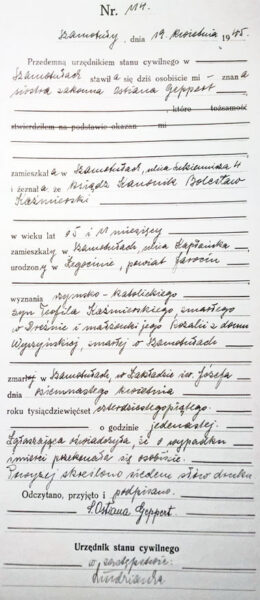 Nr. 114.
Szamotuły, dnia 19 kwietnia 1945.
Przedemną urzędnikiem stanu cywilnego w
Szamotułach stawiła się dziś osobiście mi – znana
siostra zakonna Ostiana Geppert
, którą tożsamość
stwierdziłem na podstawie okazan mi
zamieszkała w Szamotułach, ulica Sukiennicza 4
i zeznała że Ksiądz Kanonik Bolesław
Kaźmierski
w wieku lat 75 i 11 miesięcy
zamieszkały w Szamotułach ulica Kapłańska
urodzony w Łęgocinie, powiat Jarocin
wyznania rzymsko-katolickiego
syn Teofila Kaźmierskiego, zmarłego
w i małżonki jego Rozalii z domu
Wyszyńskiej, zmarłej w Szamotułach
zmarł w Szamotułach, w Zakładzie św. Józefa
dnia osiemnastego kwietnia
roku tysiącdziewięćset czterdziestegopiątego.
o godzinie jedenastej.
Zgłaszająca oświadczyła, że o wypadku
śmierci przekonała się osobiście.
Powyżej skreślono siedem słów druku
Odczytano, przyjęto i podpisano.
S. Ostiana Geppert
Urzędnik stanu cywilnego
w zastępstwie: